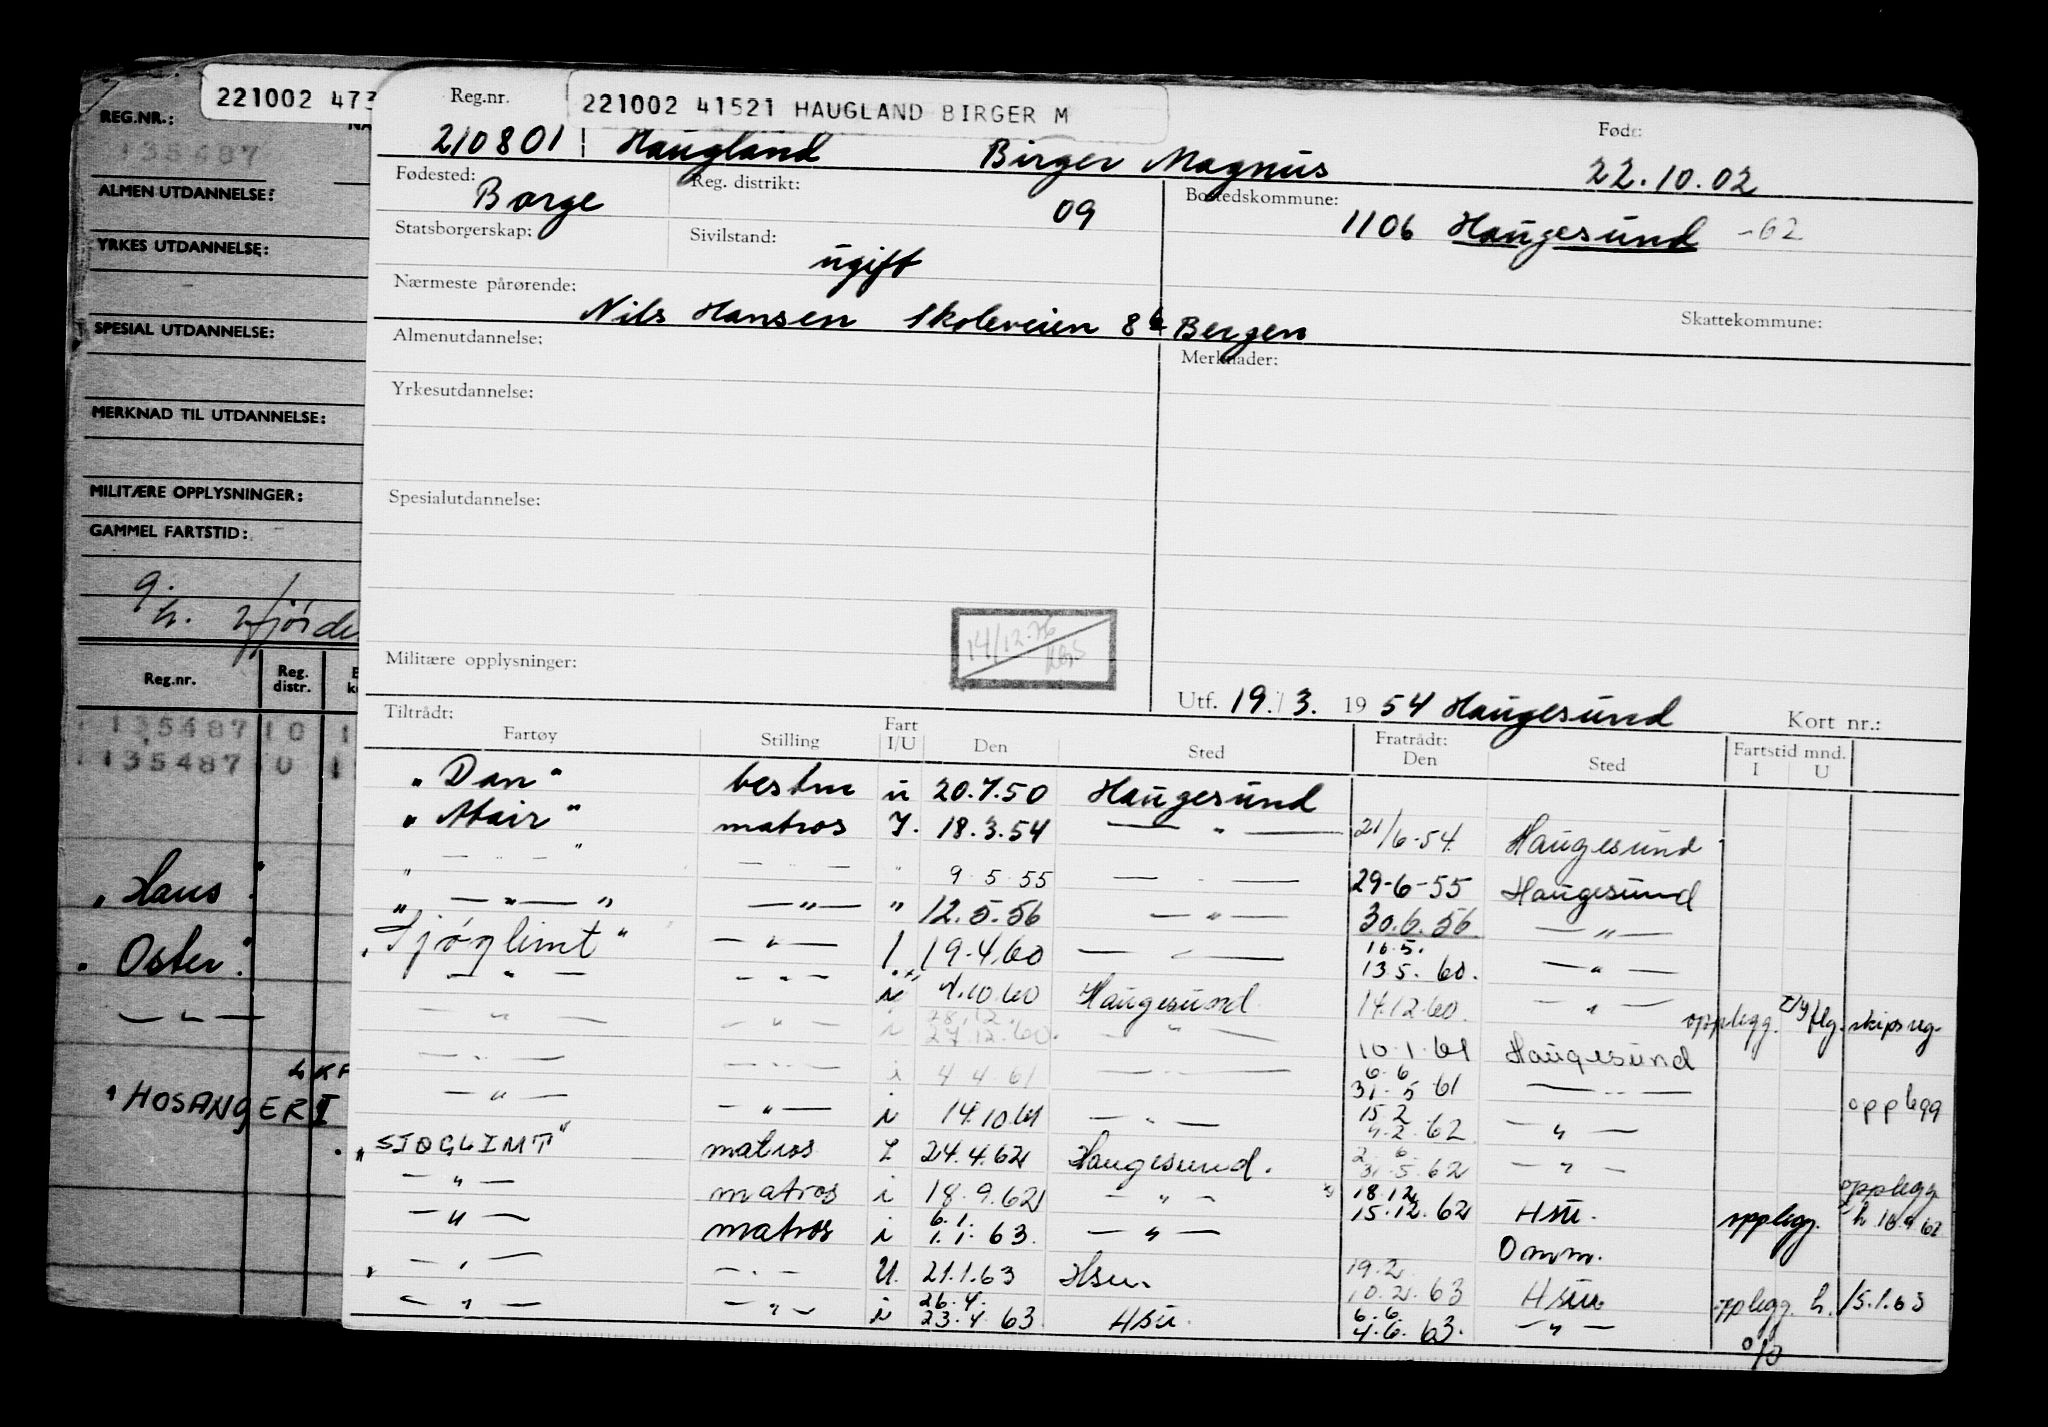 221002 473
REG.NR.:
NA
135487
ALMEN UTDANNELSE:
YRKES UTDANNELSE:
SPESIAL UTDANNELSE:
MERKNAD TIL UTDANNELSE:
MILITÆRE OPPLYSNINGER:
GAMMEL FARTSTID:
Reg.nr. Reg. distr.
135487 10 1
135487 10 1
"Haus"
"Oster"
— " —
"HOSANGER I
Reg.nr. 221002 41521 HAUGLAND BIRGER M Født:
210801 Haugland Birger Magnus 22.10.02
Fødested: Borge Reg. distrikt: 09 Bostedskommune: 1106 Haugesund -62
Statsborgerskap: Sivilstand: ugift
Nærmeste pårørende: Nils Hansen Skoleveien 8b Bergen Skattekommune:
Almenutdannelse: Merknader:
Yrkesutdannelse:
Spesialutdannelse:
14/12-76
Militære opplysninger: Utf. 19./3. 1954 Haugesund Kort nr.:
Tiltrådt: Fratrådt: Fartstid mnd.
Fartøy Stilling Fart I/U Den Sted Den Sted I U
"Dan" bestm u 20.7.50 Haugesund
" " matros I. 18.3.54 — " — 21/6-54. Haugesund
" — " — " — " — " 9.5.55 — — 29-6-55 Haugesund
" — " — " — " — " 12.5.56 — " — 30.6.56 — " —
"Sjøglimt" — " — I 19.4.60 — " — 16.5. 13.5.60. — " —
— " — — " — i 4.10.60 Haugesund 14.12.60. — " — opplegg. skipsreg.
— " — — " — i 28.12. 27.12.60. — " — 10.1.61 Haugesund
— " — — " — i 4.4.61 — " — 6.6 31.5.61 — " — opplegg
— " — — " — i 14.10.61 — " — 15.2 .2.62 — " —
"SJØGLIMT" matros I 24.4.62 Haugesund. 2.6. 31.5.62 — " — opplegg
— " — matros i 18.9.62 — " — 18.12. 15.12.62 Hsu. opplegg.
— " — matros i 6.1. 1.1.63. — " — Omm.
" — " — — " — U. 21.1.63 Hsu. 19.2 10.2.63 Hsu. opplegg. h. 15.1.63
— " — — " — i 26.4. 23.4.63 Hsu. 6.6. 4.6.63. — " —